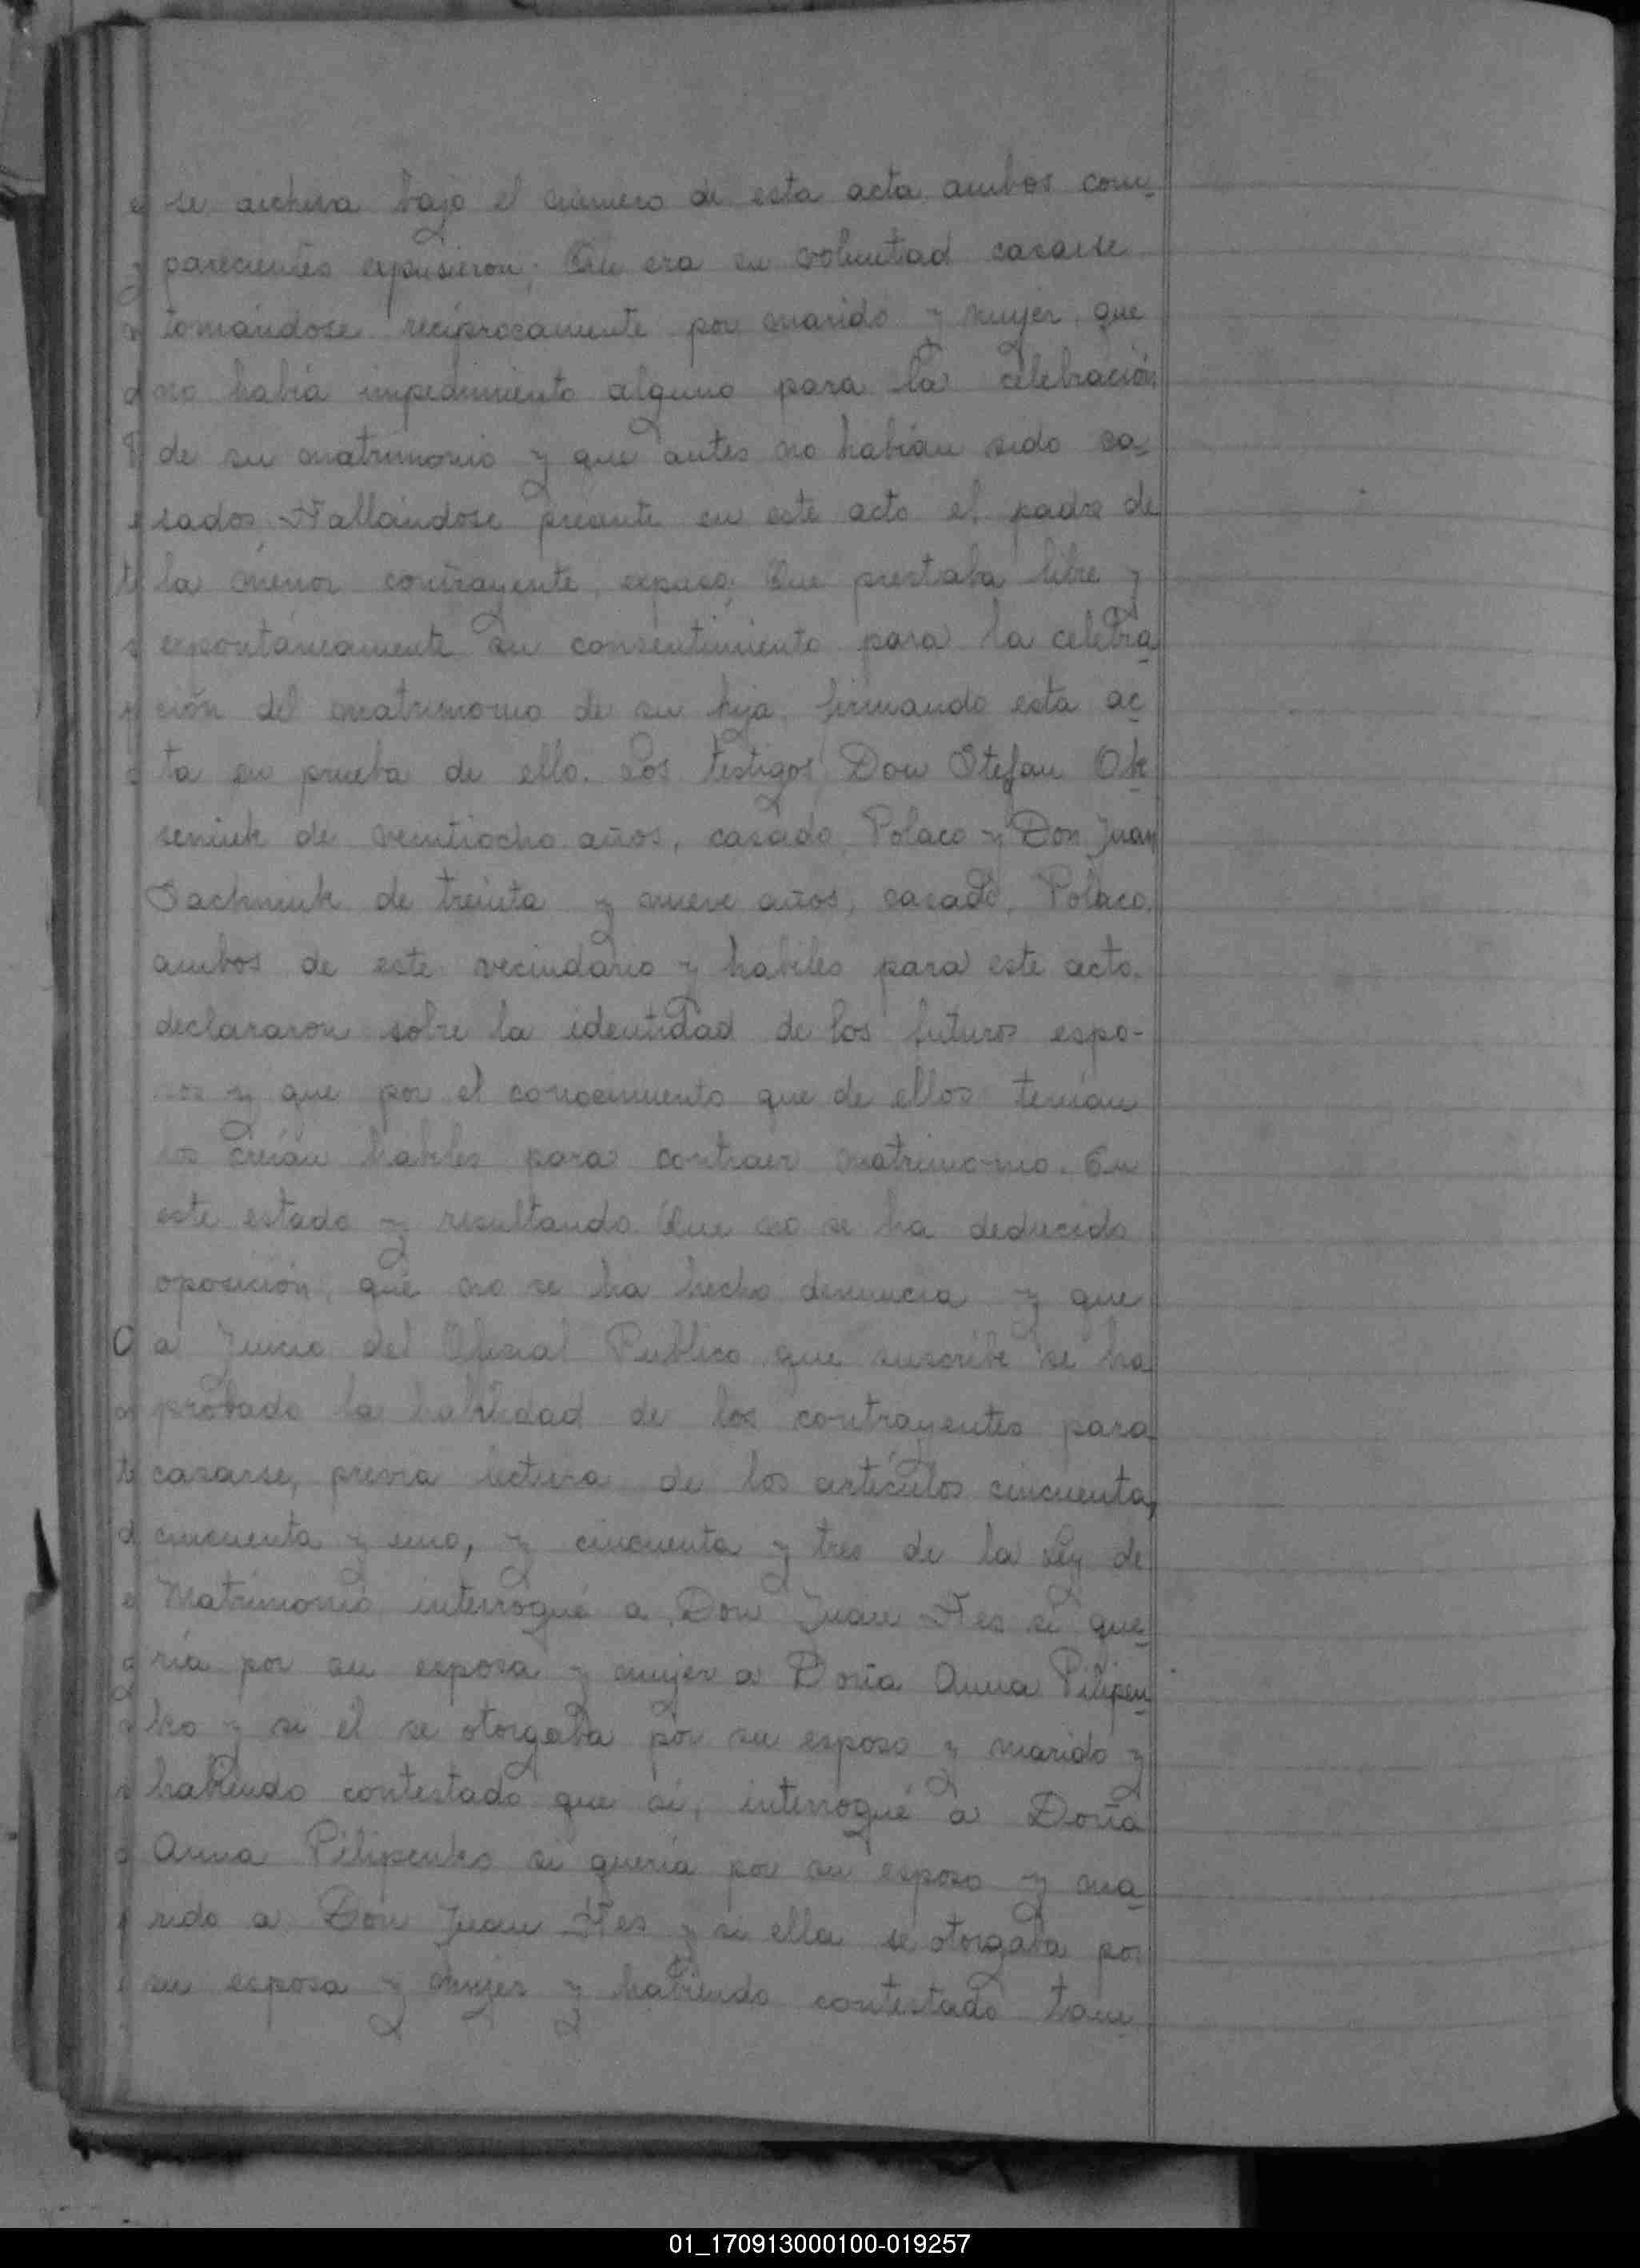 se archiva bajo el número de esta acta ambos com-
parecientes expusieron: Que era su voluntad casarse
tomándose recíprocamente por marido y mujer, que
no había impedimiento alguno para la celebración
de su matrimonio y que antes no habían sido ca-
sados. Hallándose presente en este acto el padre de
la menor contrayente, expuso: Que prestaba libre y
expontáneamente su consentimiento para la celebra-
ción del matrimonio de su hija, firmando esta ac-
ta en prueba de ello. Los testigos Don Stefan Ok-
seniuk de veintiocho años, casado, Polaco y Don Juan
Sachniuk de treinta y nueve años, casado, Polaco,
ambos de este vecindario y habiles para este acto,
declararon sobre la identidad de los futuros espo-
sos y que por el conocimiento que de ellos tenían
los creían hábiles para contraer matrimonio. En
este estado y resultando: Que no se ha deducido
oposición, que no se ha hecho denuncia y que
a Juicio del Oficial Publico que suscribe se ha
probado la habilidad de los contrayentes para
casarse, previa lectura de los artículos cincuenta,
cincuenta y uno, y cincuenta y tres de la Ley de
Matrimonio interrogué a Don Juan Hes si que-
ría por su esposa y mujer a Doña Anna Pilipen-
ko y si el se otorgaba por su esposo y marido y
habiendo contestado que sí, interrogué a Doña
Anna Pilipenko si quería por su esposo y ma-
rido a Don Juan Hes y si ella se otorgaba por
su esposa y mujer y habiendo contestado tam-
01_170913000100-019257